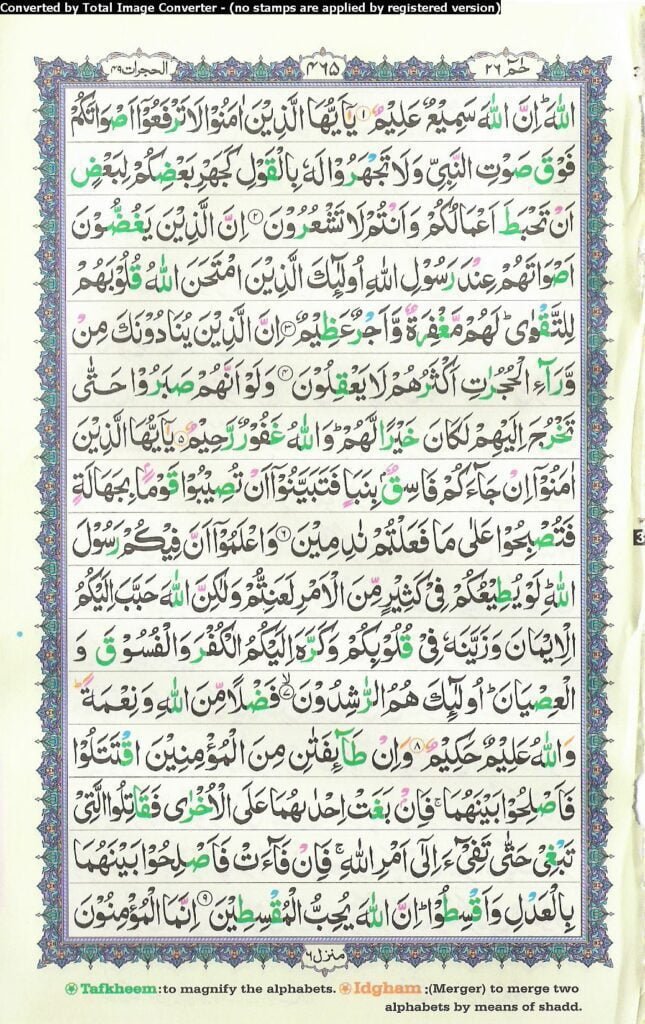 Converted by Total Image Converter - (no stamps are applied by registered version)
الحجرات ۴۹
۴۶۵
حٰمٓ ۲۶
اللّٰهَ ؕ اِنَّ اللّٰهَ سَمِیْعٌ عَلِیْمٌ ۱ یٰۤاَیُّهَا الَّذِیْنَ اٰمَنُوْا لَا تَرْفَعُوْۤا اَصْوَاتَكُمْ
فَوْقَ صَوْتِ النَّبِیِّ وَ لَا تَجْهَرُوْا لَهٗ بِالْقَوْلِ كَجَهْرِ بَعْضِكُمْ لِبَعْضٍ
اَنْ تَحْبَطَ اَعْمَالُكُمْ وَ اَنْتُمْ لَا تَشْعُرُوْنَ ۲ اِنَّ الَّذِیْنَ یَغُضُّوْنَ
اَصْوَاتَهُمْ عِنْدَ رَسُوْلِ اللّٰهِ اُولٰٓىِٕكَ الَّذِیْنَ امْتَحَنَ اللّٰهُ قُلُوْبَهُمْ
لِلتَّقْوٰی ؕ لَهُمْ مَّغْفِرَةٌ وَّ اَجْرٌ عَظِیْمٌ ۳ اِنَّ الَّذِیْنَ یُنَادُوْنَكَ مِنْ
وَّرَآءِ الْحُجُرٰتِ اَكْثَرُهُمْ لَا یَعْقِلُوْنَ ۴ وَ لَوْ اَنَّهُمْ صَبَرُوْا حَتّٰی
تَخْرُجَ اِلَیْهِمْ لَكَانَ خَیْرًا لَّهُمْ ؕ وَ اللّٰهُ غَفُوْرٌ رَّحِیْمٌ ۵ یٰۤاَیُّهَا الَّذِیْنَ
اٰمَنُوْۤا اِنْ جَآءَكُمْ فَاسِقٌۢ بِنَبَاٍ فَتَبَیَّنُوْۤا اَنْ تُصِیْبُوْا قَوْمًۢا بِجَهَالَةٍ
فَتُصْبِحُوْا عَلٰی مَا فَعَلْتُمْ نٰدِمِیْنَ ۶ وَ اعْلَمُوْۤا اَنَّ فِیْكُمْ رَسُوْلَ
اللّٰهِ ؕ لَوْ یُطِیْعُكُمْ فِیْ كَثِیْرٍ مِّنَ الْاَمْرِ لَعَنِتُّمْ وَ لٰكِنَّ اللّٰهَ حَبَّبَ اِلَیْكُمُ
الْاِیْمَانَ وَ زَیَّنَهٗ فِیْ قُلُوْبِكُمْ وَ كَرَّهَ اِلَیْكُمُ الْكُفْرَ وَ الْفُسُوْقَ وَ
الْعِصْیَانَ ؕ اُولٰٓىِٕكَ هُمُ الرّٰشِدُوْنَ ۙ۷ فَضْلًا مِّنَ اللّٰهِ وَ نِعْمَةً ؕ
وَ اللّٰهُ عَلِیْمٌ حَكِیْمٌ ۸ وَ اِنْ طَآىِٕفَتٰنِ مِنَ الْمُؤْمِنِیْنَ اقْتَتَلُوْا
فَاَصْلِحُوْا بَیْنَهُمَا ۚ فَاِنْۢ بَغَتْ اِحْدٰىهُمَا عَلَی الْاُخْرٰی فَقَاتِلُوا الَّتِیْ
تَبْغِیْ حَتّٰی تَفِیْٓءَ اِلٰۤی اَمْرِ اللّٰهِ ۚ فَاِنْ فَآءَتْ فَاَصْلِحُوْا بَیْنَهُمَا
بِالْعَدْلِ وَ اَقْسِطُوْا ؕ اِنَّ اللّٰهَ یُحِبُّ الْمُقْسِطِیْنَ ۹ اِنَّمَا الْمُؤْمِنُوْنَ
منزل ۶
Tafkheem:to magnify the alphabets. Idgham :(Merger) to merge two
alphabets by means of shadd.